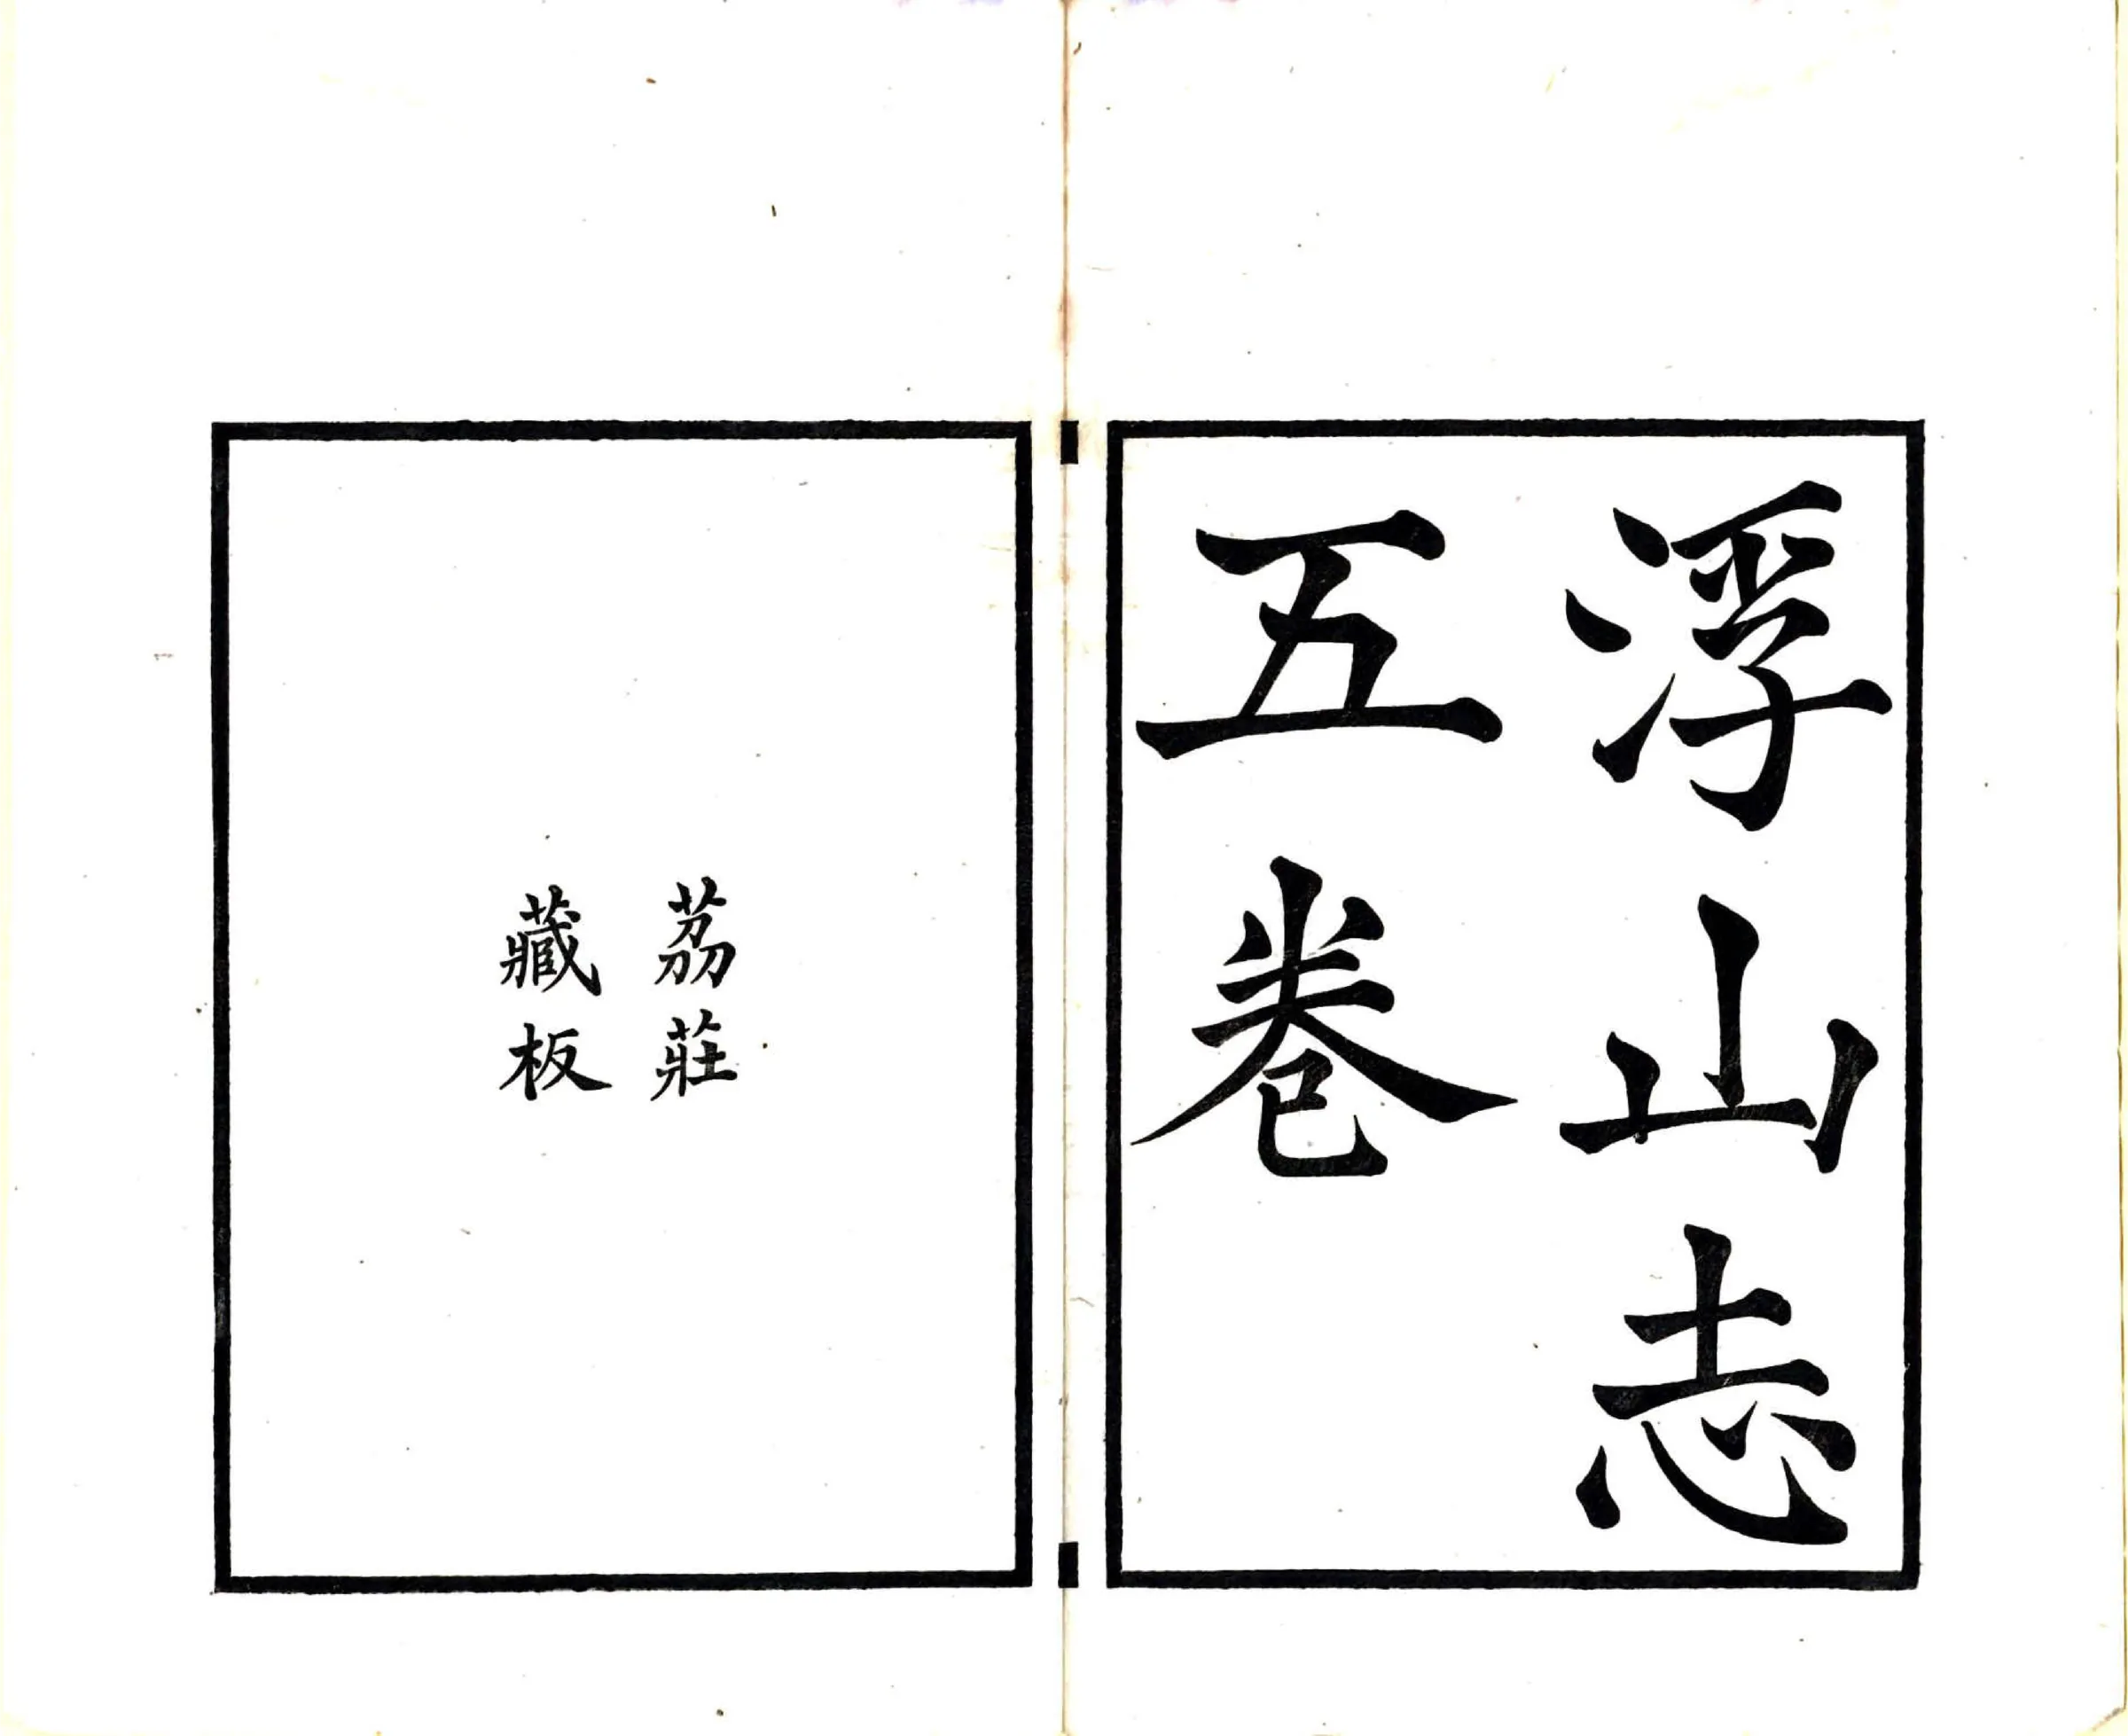 浮山志
五卷
荔莊
藏板